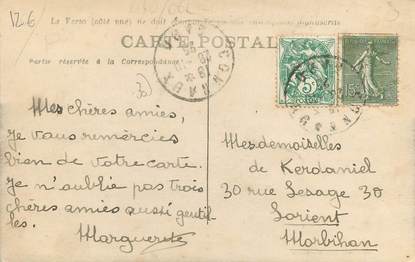 126
Le Verso (côté vue) ne doit
manuscrits
CARTE POSTALE
Partie réservée à la Correspondance
CONNAUX
5
15
Mes chères amies,
je vous remercies
bien de votre carte.
je n'aublie pas trois
chères amies aussi gentil-
les.
Marguerite
Mesdemoiselles
de Kerdaniel
30 rue Lesage 30
Lorient
Morbihan